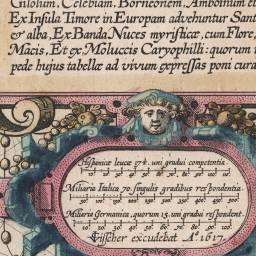 Gilolum, Celebiam, Borneonem, Amboinum et
Ex Insula Timore in Europam advehuntur Sant
& alba, Ex Banda Nuces myristicæ, cum Flore,
Macis, Et ex Moluccis Caryophilli: quorum i
pede hujus tabellæ ad vivum expressas poni cura
Hispanicæ leucæ 17½. uni gradui competentia.
Miliaria Italica 70. singulis gradibus respondentia.
Miliaria Germanica, quorum 15. uni gradui respondent.
excudebat Aº. 1617.